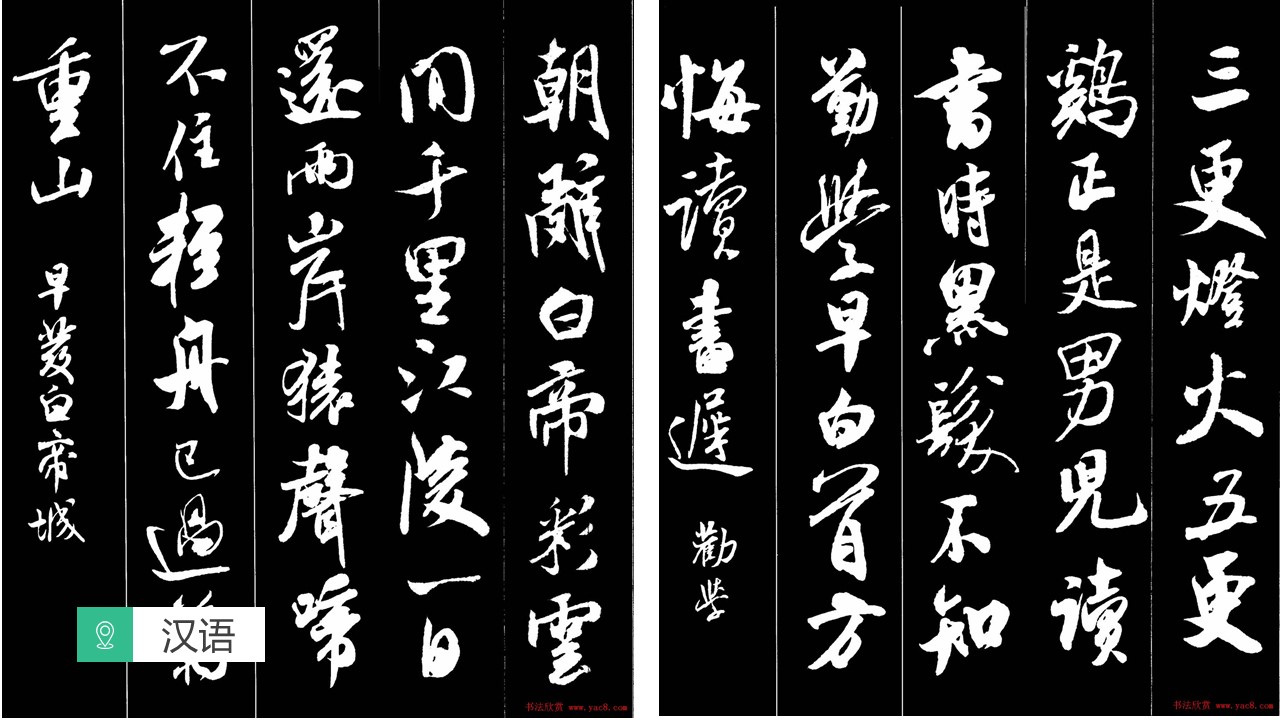 三更燈火五更
鷄正是男兒讀
書時黑髮不知
勤學早白首方
悔讀書遲 勸學
书法欣赏 www.yac8.com
朝辭白帝彩雲
間千里江陵一日
還兩岸猿聲啼
不住輕舟已過萬
重山 早發白帝城
书法欣赏 www.yac8.com
汉语